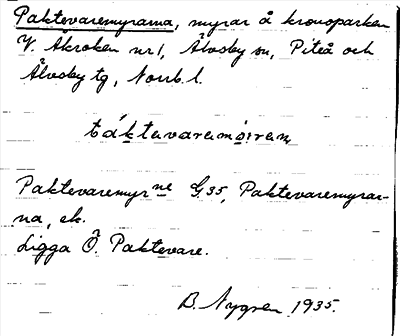 Paktevaremyrarna, myrar å kronoparken
V. Åkroken nr 1, Älvsby sn, Piteå och
Älvsby tg, Norrb. l.
Paktevaremyrne G35, Paktevaremyrar-
na, ek.
Ligga Ö. Paktevare.
B. Nygren 1935.